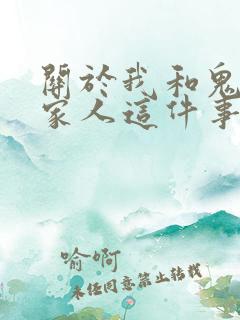 關於我和鬼
家人這件事
喻啊
未經同意禁止轉載